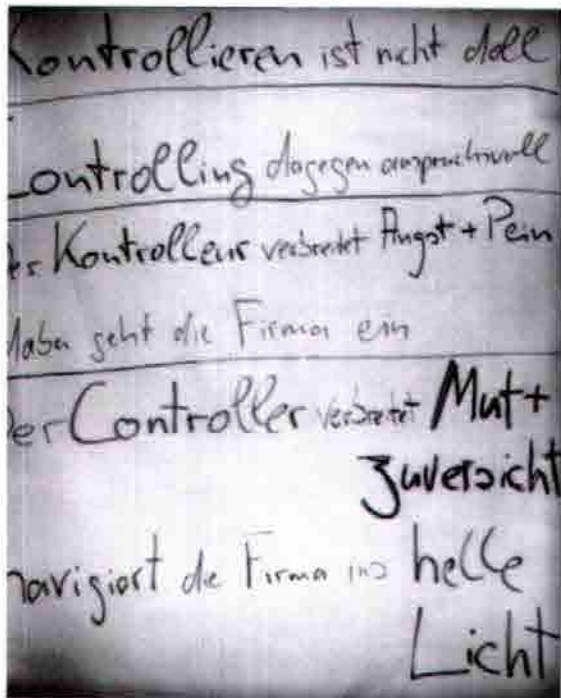 Kontrollieren ist nicht doll
Controlling dagegen anspruchsvoll
Der Kontrolleur verbreitet Angst + Pein
dabei geht die Firma ein
Der Controller verbreitet Mut +
Zuversicht
navigiert die Firma ins helle
Licht